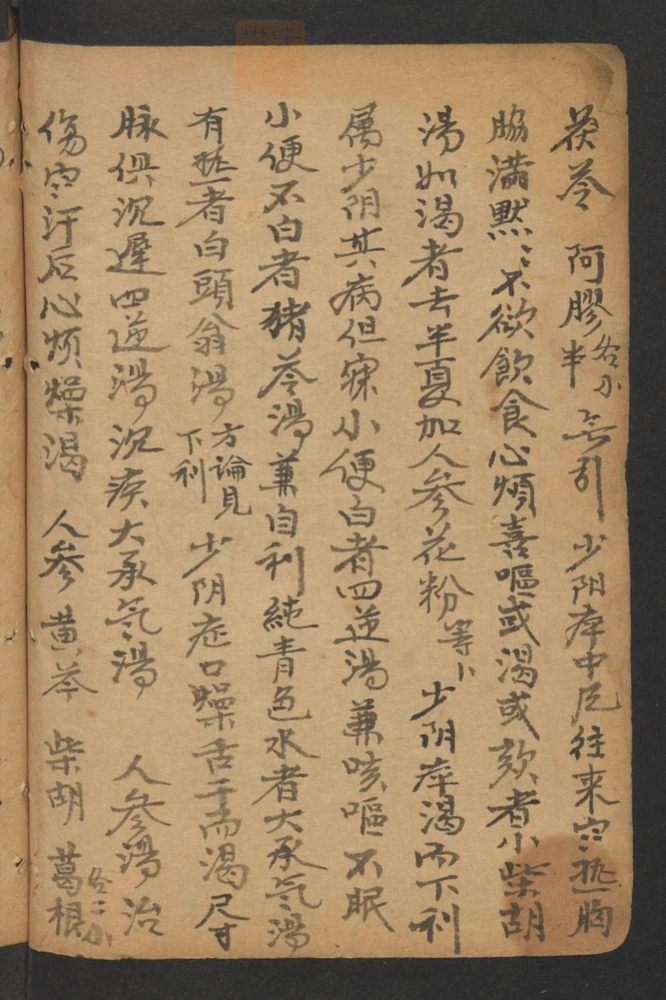 茯苓 阿膠各小半 右引 少阳症中尪往来寒热胸
脇满黙〻不欲飲食心煩喜嘔或渴或欬者小柴胡
湯如渴者去半夏加人參花粉等卜 少阴症渴而下利
属少阴其病但寐小便白者四逆湯兼咳嘔不眠
小便不白者猪苓湯兼自利純青色水者大承气湯
有热者白頭翁湯方論見下利 少阴症口燥舌干而渴尺寸
脉俱沉遲四逆湯沉疾大承气湯 人參湯治
傷寒汗后心煩燥渴 人參 黄芩 柴胡 葛根各二小